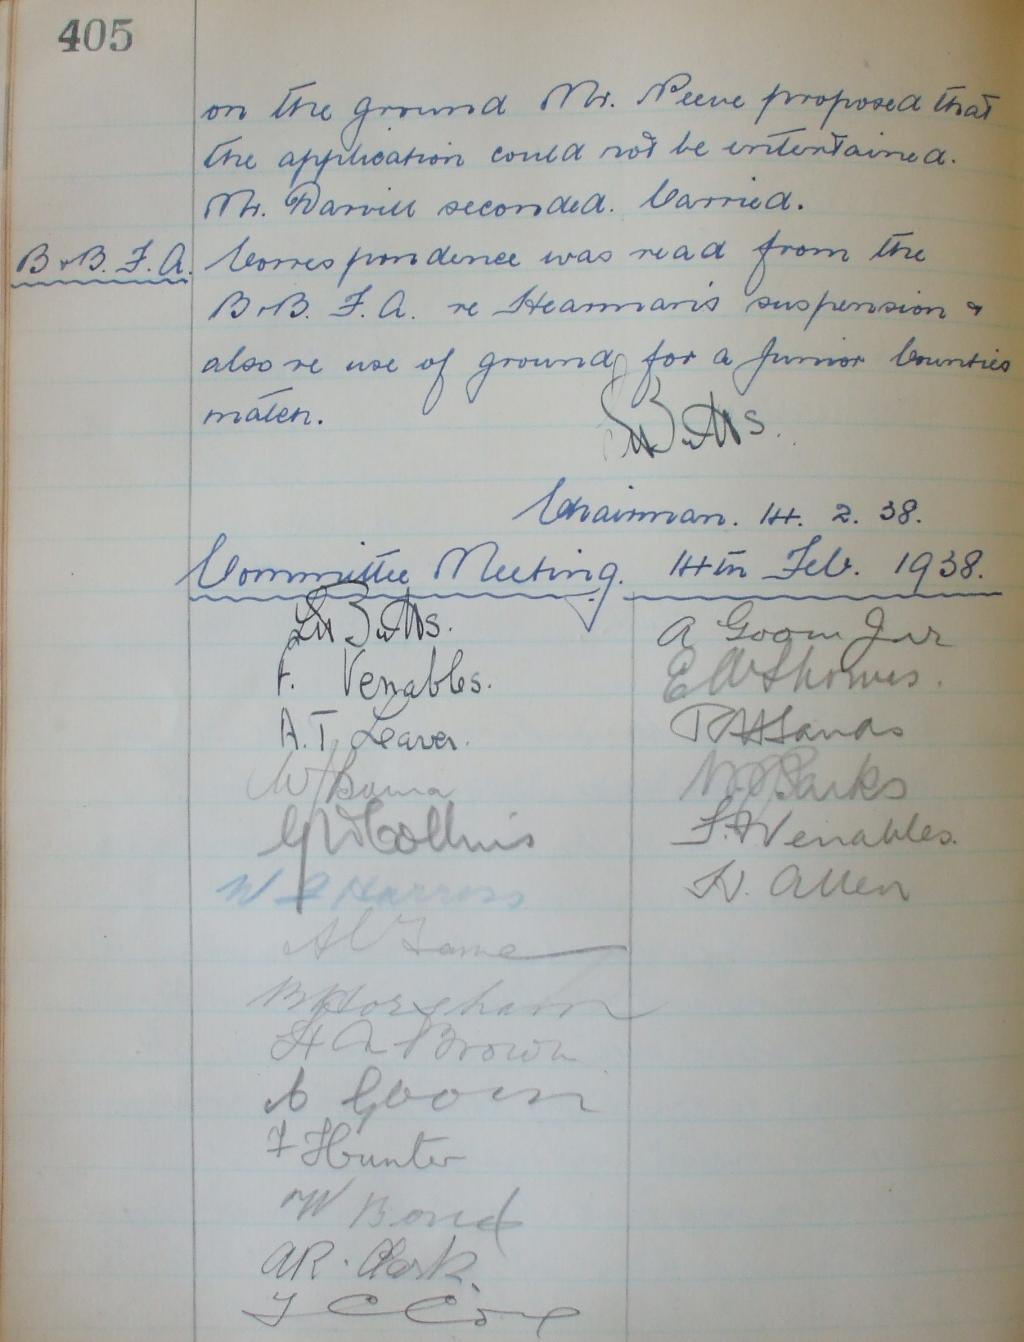 405
on the ground Mr. Peeve proposed that
the application could not be entertained.
Mr. Darvill seconded. Carried.
B & B. F. A. Correspondence was read from the
B & B. F. A. re Hearman's suspension &
also re use of ground for a Junior Counties
match.
Butts.
Chairman. 14. 2. 38.
Committee Meeting. 14th Feb. 1938.
Butts.
F. Venables.
A. T. Leaver.
W
G W Collins
W Harross
A
B Horsham
H A Brown
Goom
F Hunter
W Bond
A R. Clark.
A Goom Jnr
E W
Sands
Parks
F. Venables.
H. Allen